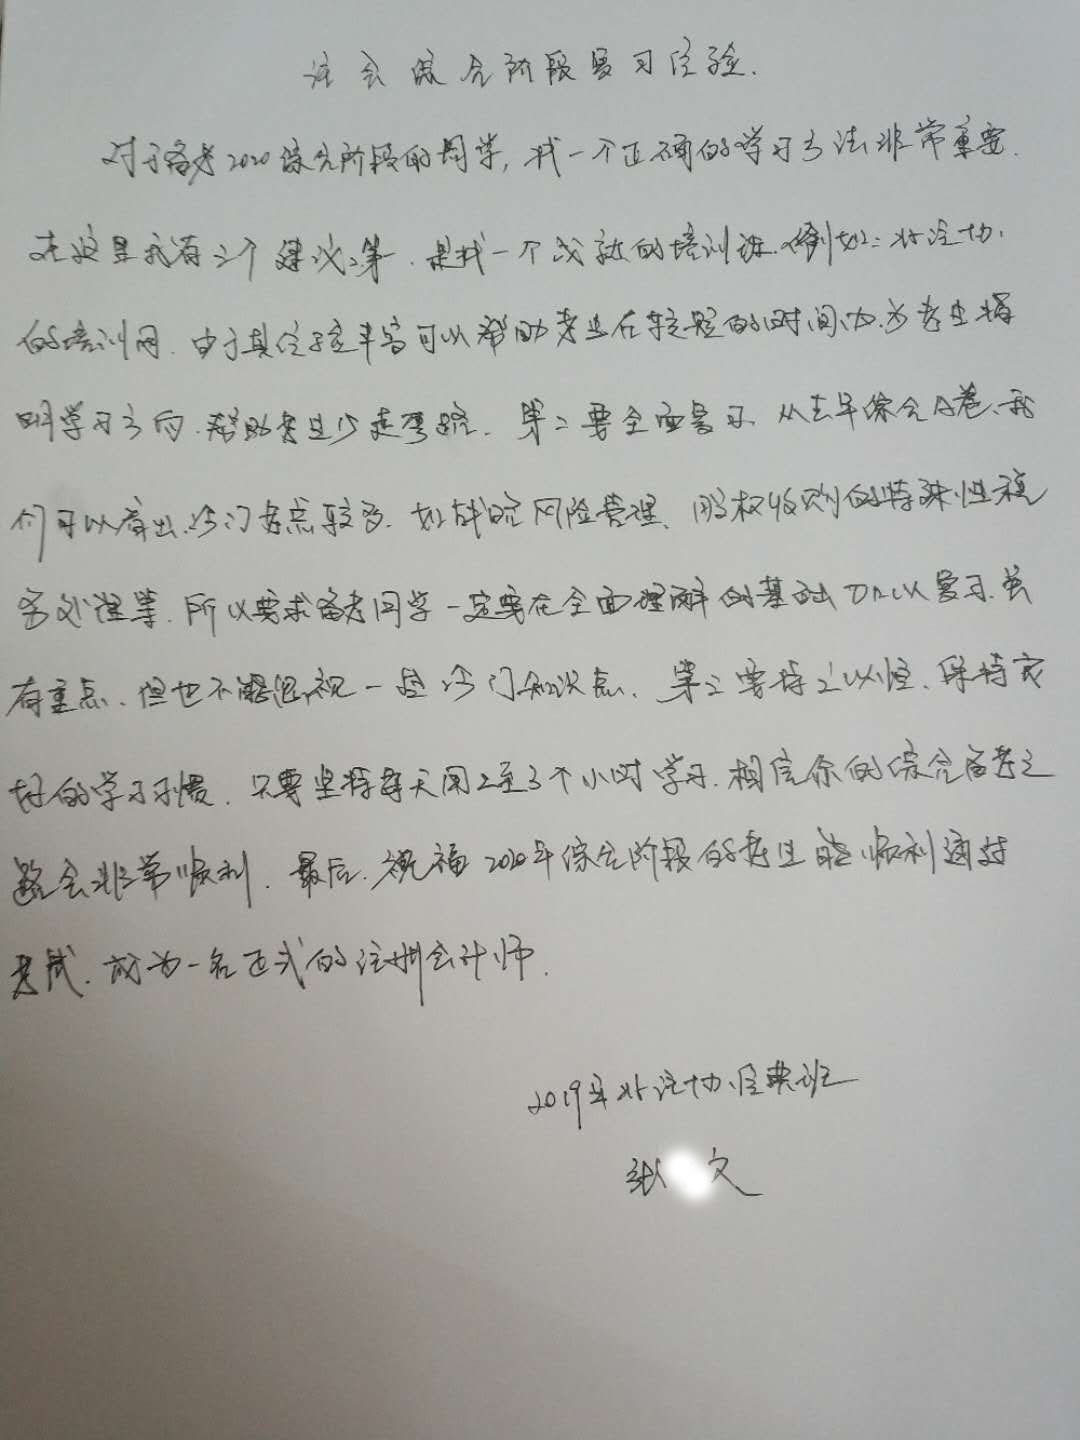 注会综合阶段复习经验.
对于备考2020综合阶段的同学,找一个正确的学习方法非常重要.
在这里我有三个建议:第一.是找一个成熟的培训班.例如:北注协.
的培训网.由于其经验丰富可以帮助考生后的时间,为考生指
明学习方向.帮助考生少走弯路.第二要全面复习.从去年综合A卷,我
们可以看出.冷门考点较多.如战略风险管理、股权收购的特殊性税
务处理等.所以要求备考同学一定要在全面理解的基础加以复习.虽
有重点.但也不能忽视一些冷门知识点.第三要持之以恒.保持良
好的学习习惯.只要坚持每天用2至3个小时学习.相信你的综合备考之
路会非常顺利.最后.祝福2020年综合阶段的考生能顺利通过
考试.成为一名正式的注册会计师.
2019年北注协经典班
张 文